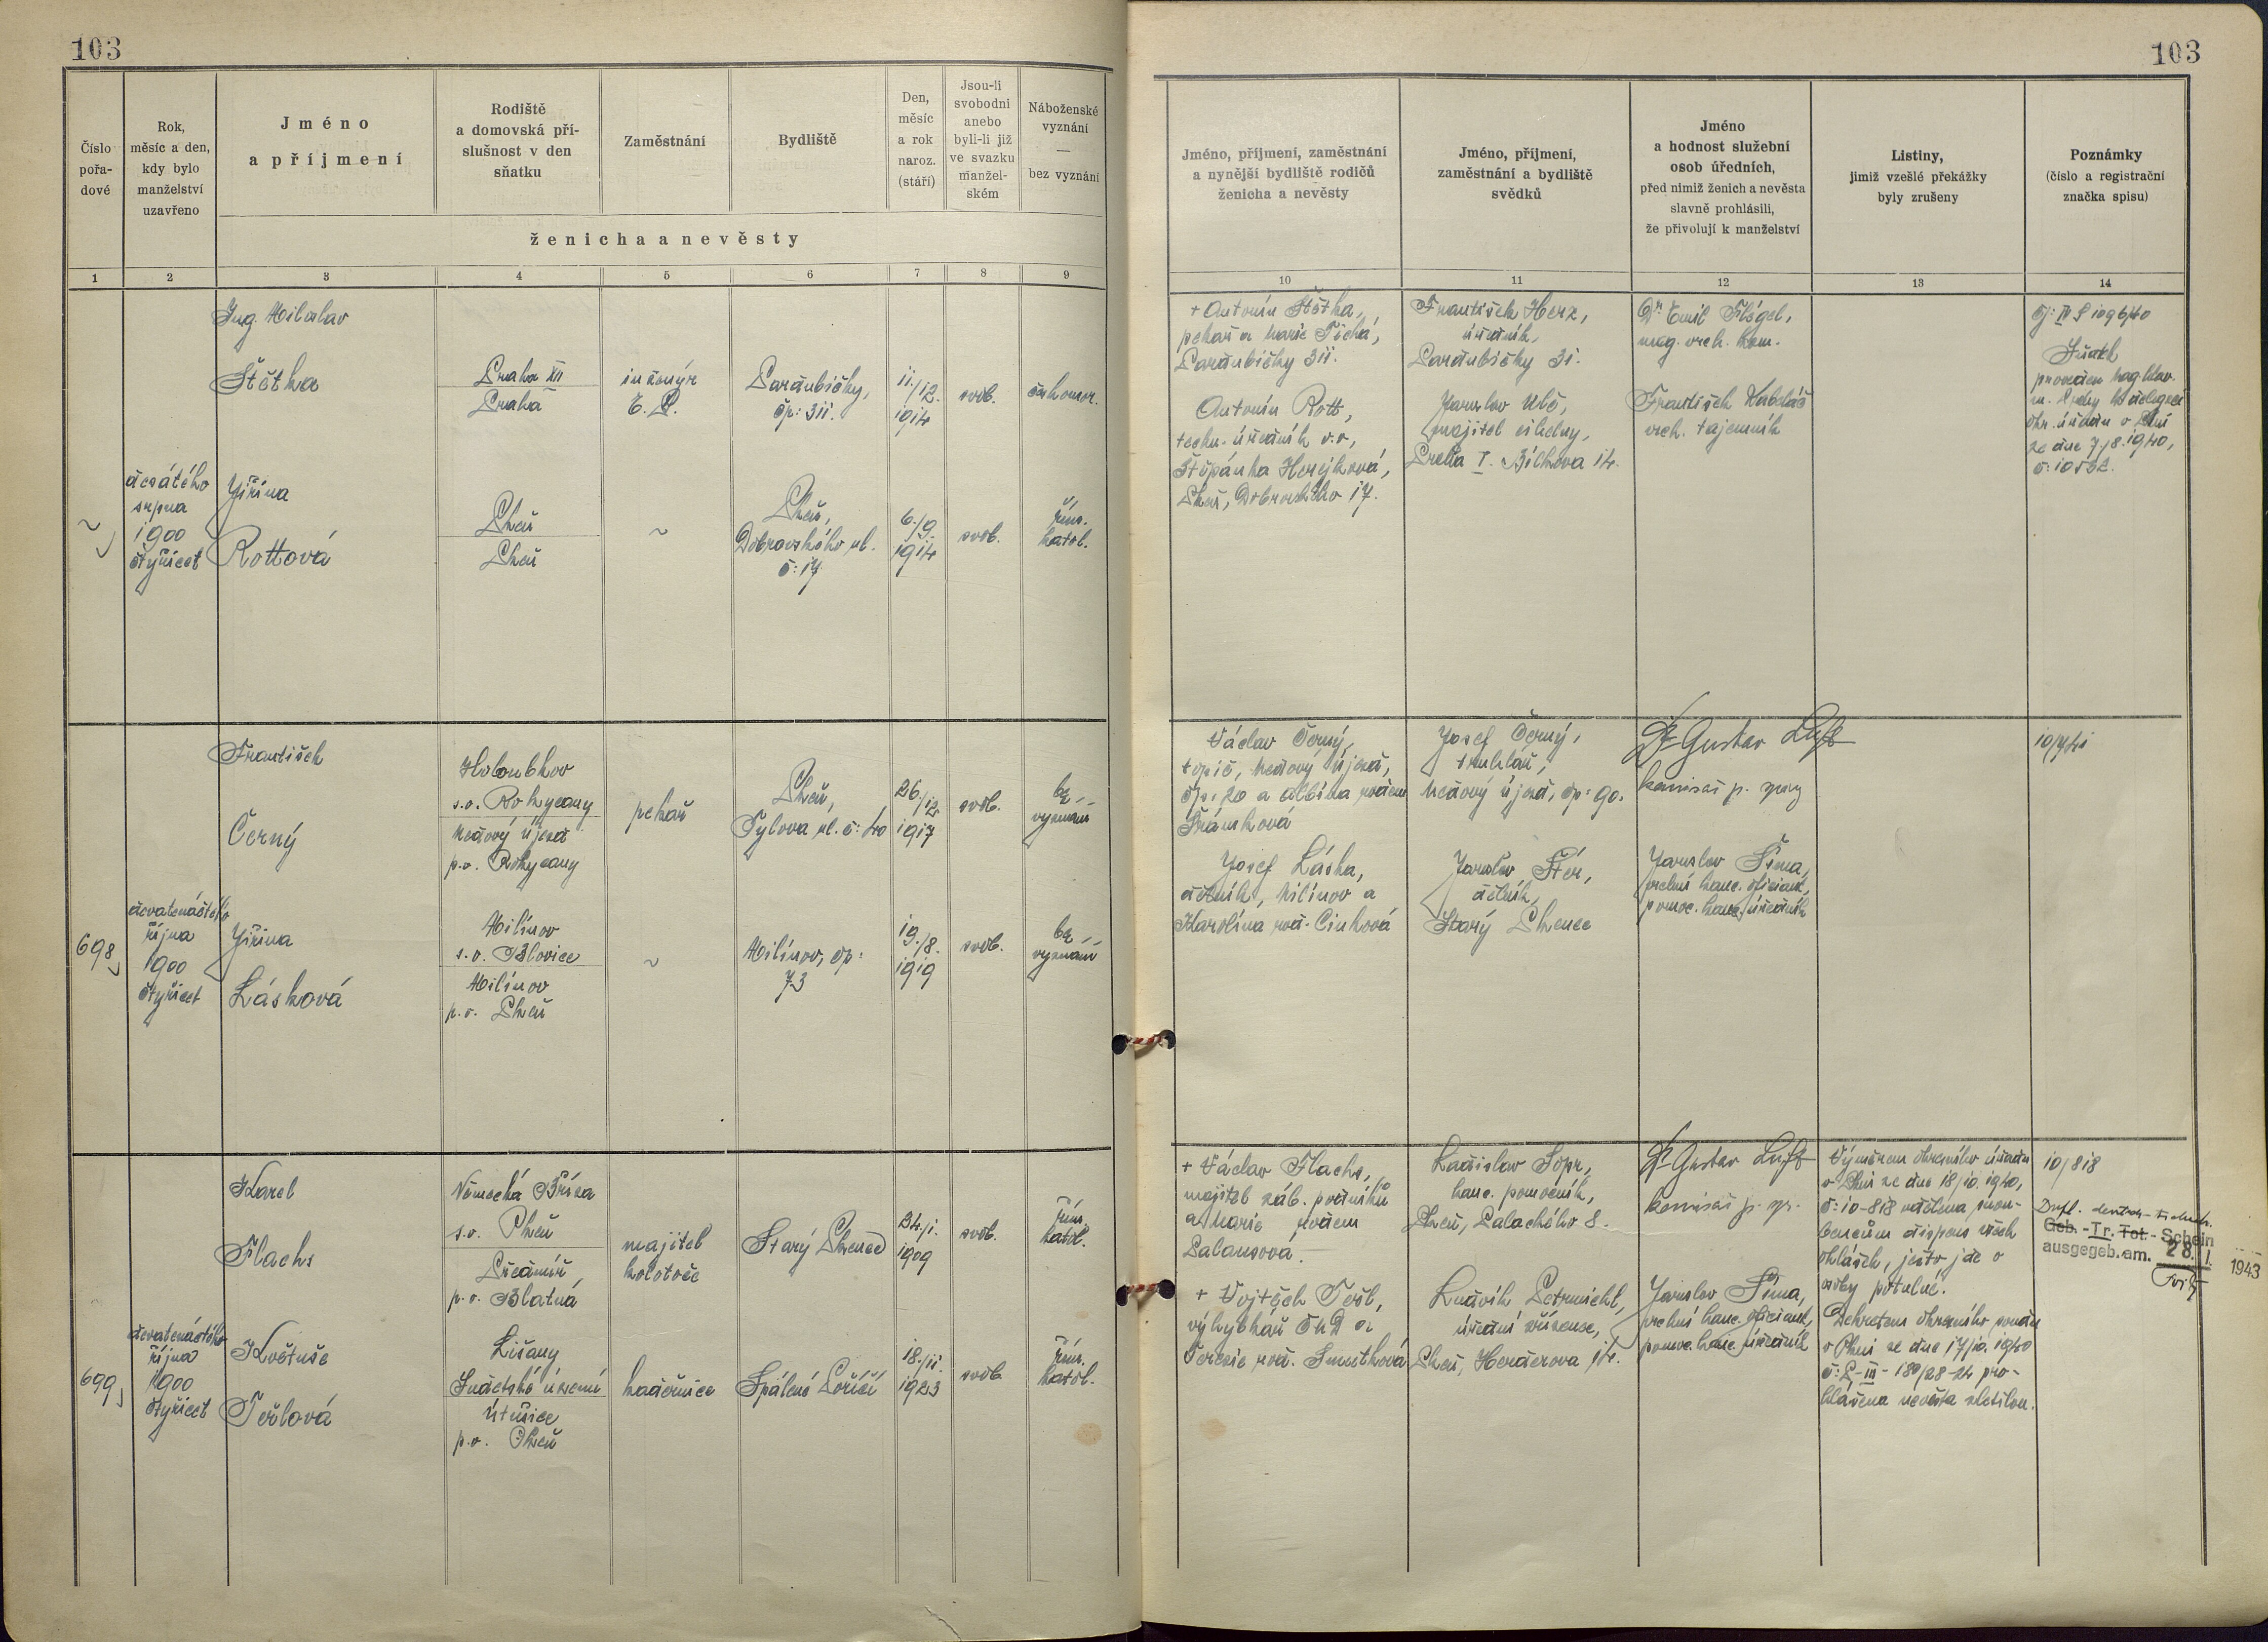 103
103
Číslo pořa-dové
Rok, měsíc a den, kdy bylo manželství uzavřeno
Jméno a příjmení
Rodiště a domovská pří-slušnost v den sňatku
Zaměstnání
Bydliště
Den, měsíc a rok naroz. (stáří)
Jsou-li svobodni anebo byli-li již ve svazku manžel-ském
Náboženské vyznání — bez vyznání
ženicha a nevěsty
Jméno, příjmení, zaměstnání a nynější bydliště rodičů ženicha a nevěsty
Jméno, příjmení, zaměstnání a bydliště svědků
Jméno a hodnost služební osob úředních, před nimiž ženich a nevěsta slavně prohlásili, že přivolují k manželství
Listiny, jimiž vzešlé překážky byly zrušeny
Poznámky (číslo a registrační značka spisu)
1 2 3 4 5 6 7 8 9
10 11 12 13 14
Ing. Miloslav
Štětka
Praha XII
Praha
inženýr
Pardubičky,
čp: 311.
11./12.
1914
svob.
čs. Antonín Štětka,
pekař a Marie Tichá,
Pardubičky 311.
František Herz,
úředník,
Pardubičky 31.
Dr. Emil Flögel,
mag. vrch. kom.
desátého
srpna
1900
čtyřicet
Jiřina
Rottová
Plzeň
Plzeň
~
Plzeň,
Dobrovského ul.
č: 17
6./9.
1914
svob.
řím.
katol.
Antonín Rott,
techn. úředník v.v,
Štěpánka Herejková,
Plzeň, Dobrovského 17.
Jaroslav Ulč,
majitel cihelny,
Praha I. Bílkova 14.
František Kabeláč
vrch. tajemník
Sňatek
ze dne 7./8. 1940,
698
devatenáctého
října
1900
čtyřicet
František
Černý
Holoubkov
s.o. Rokycany
Medový Újezd
p.o. Rokycany
pekař
Plzeň,
Tylova ul. č: 40
26./12.
1917
svob.
bez
vyznání
Václav Černý,
topič, Medový Újezd,
čp: 20 a Albína rozen
Frámková
Josef Černý,
truhlář,
Medový Újezd, čp: 90.
Dr Gustav Luft
komisař p. správy
10/7/41
Jiřina
Lásková
Milínov
s.o. Blovice
Milínov
p.o. Plzeň
~
Milínov, čp:
73
19./8.
1919
svob.
bez
vyznání
Josef Láska,
dělník, Milínov a
Karolína roz. Cinková
Jaroslav Štěr,
dělník,
Starý Plzenec
Jaroslav Šíma,
vrchní kanc. oficiant,
pomoc. kanc. úředník
699
devatenáctého
října
1900
čtyřicet
Karel
Flachs
Německá Bříza
s.o. Plzeň
Předmíř
p.o. Blatná
majitel
kolotoče
Starý Plzenec
24./1.
1909
svob.
řím.
katol.
+ Václav Flachs,
majitel záb. podniků
a Marie rozen
Palausová
Ladislav Šopr,
kanc. pomocník,
Plzeň, Palackého 8.
Dr Gustav Luft
komisař p. spr.
Výměrem okresního úřadu
v Plzni ze dne 18/10. 1940,
č: 10-818 udělena snou-
bencům dispens všech
ohlášek, ježto jde o
osoby potulné.
Dekretem okresního soudu
v Plzni ze dne 17/10. 1940
č: P-III-180/28-24 pro-
hlášena nevěsta zletilou.
10/818
Geb.-Tr. Tot.-Schein
ausgegeb. am. 28. I. 1943
Květuše
Teřlová
Líšany
Sudetské území
Útušice
p.o. Plzeň
kadeřnice
Spálené Poříčí
18./11.
1923
svob.
řím.
katol.
+ Vojtěch Teřl,
výhybkář ČMD a
Terezie roz. Smutková
Ludvík Petrmichl,
úřední zřízenec,
Plzeň, Herderova 14.
Jaroslav Šíma,
vrchní kanc. oficiant,
pomoc. kanc. úředník